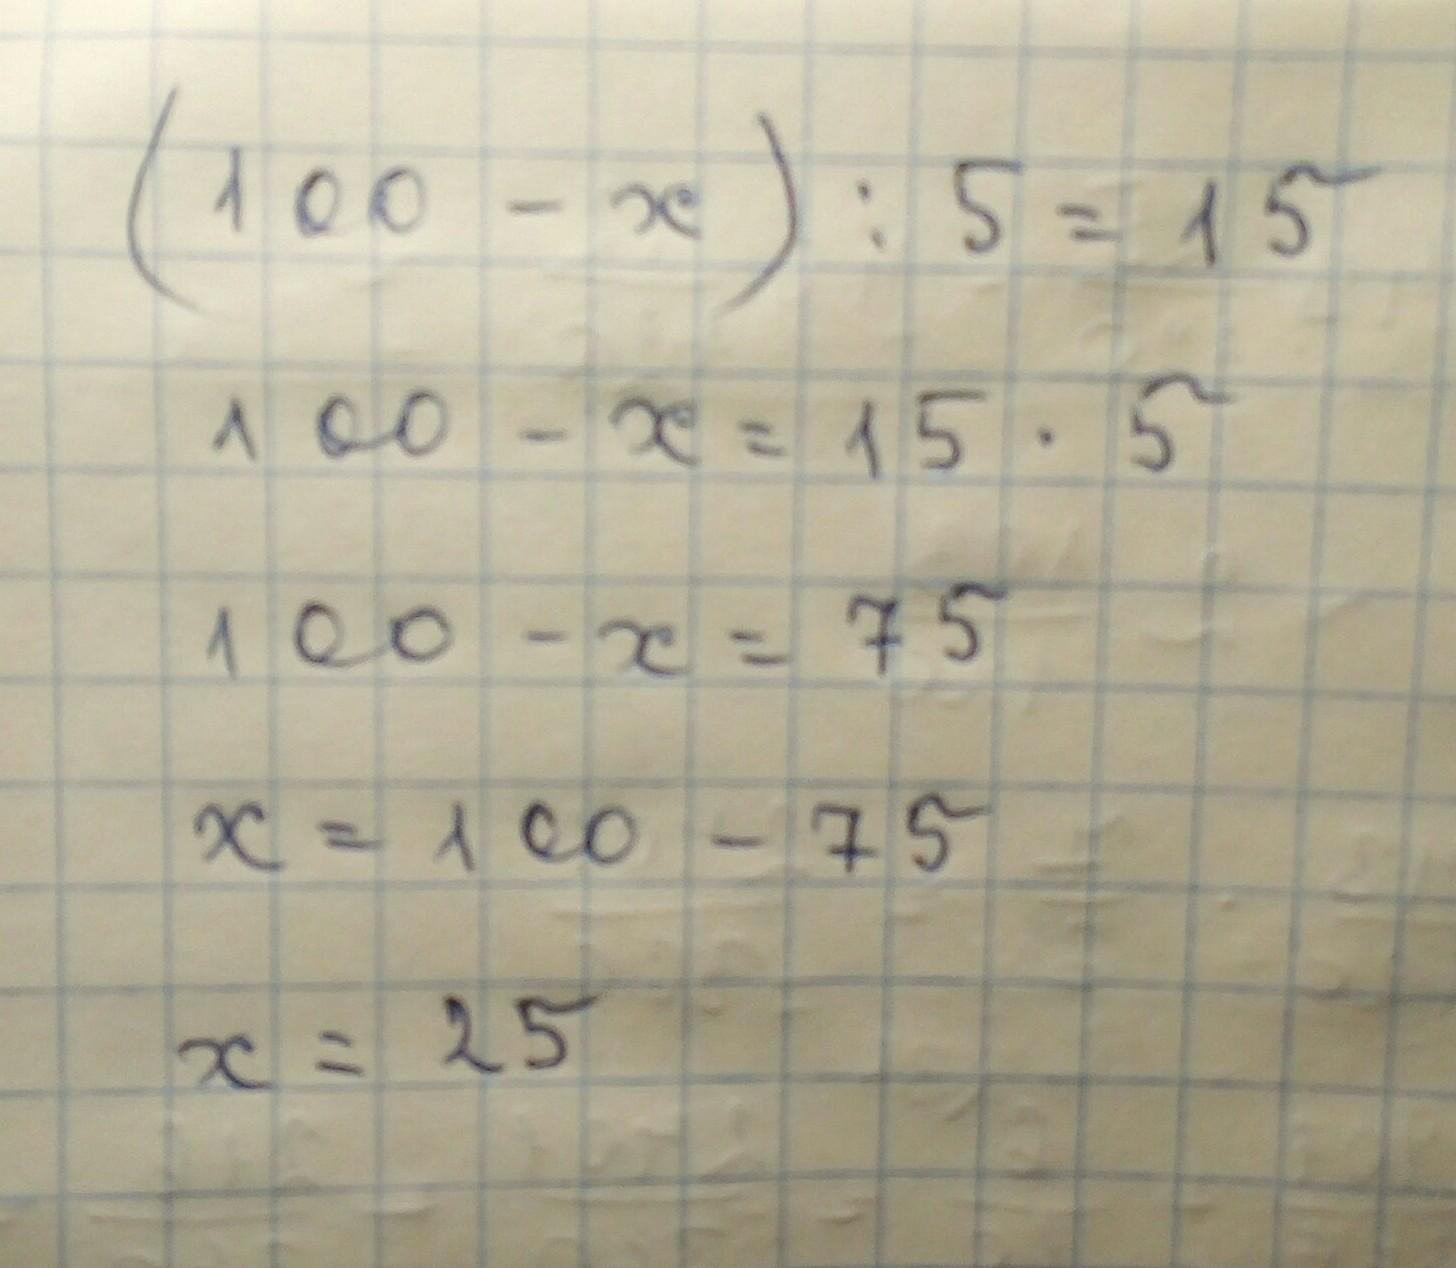 (100 - x) : 5 = 15
100 - x = 15 · 5
100 - x = 75
x = 100 - 75
x = 25